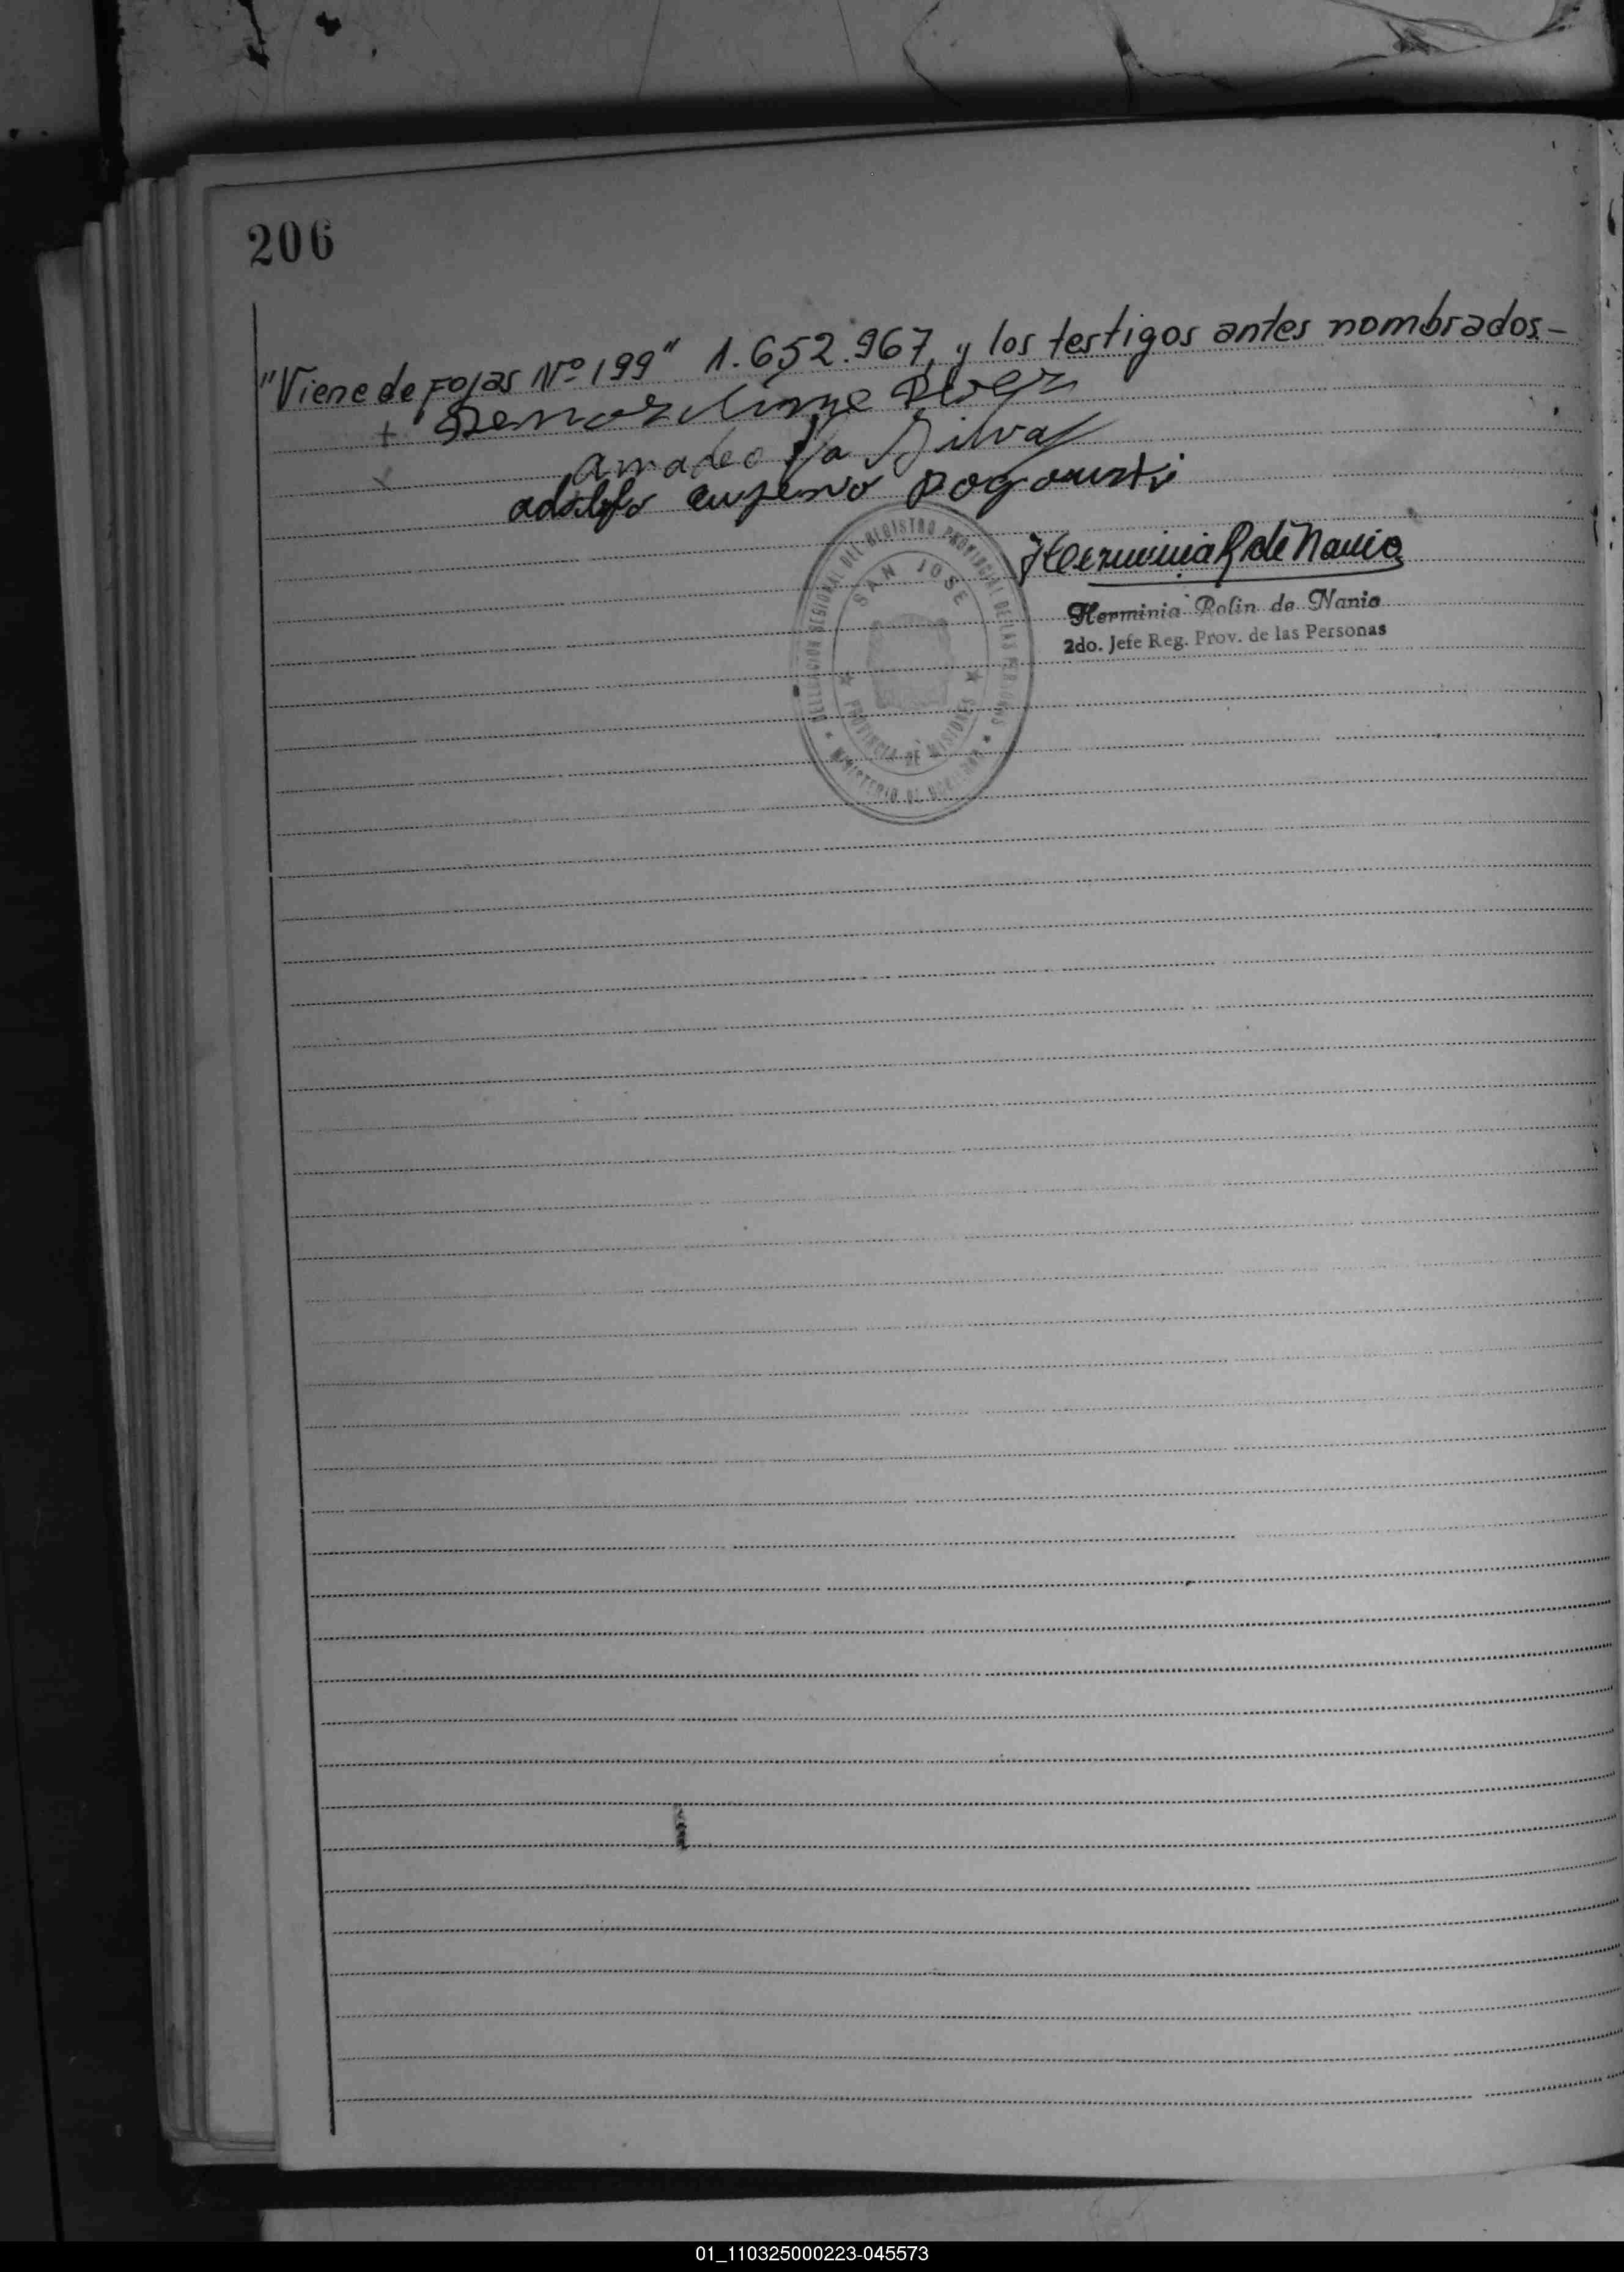 206
"Viene de Fojas Nº 199" 1.652.967, y los testigos antes nombrados.-
+
Amadeo Da Silva
adolfo eugenio
Herminia R de Nanio
Herminia Rolin de Nanio
2do. Jefe Reg. Prov. de las Personas
DELEGACION REGIONAL DEL REGISTRO PROVINCIAL DE LAS PERSONAS
SAN JOSE
PROVINCIA DE MISIONES
MINISTERIO DE GOBIERNO
01_110325000223-045573